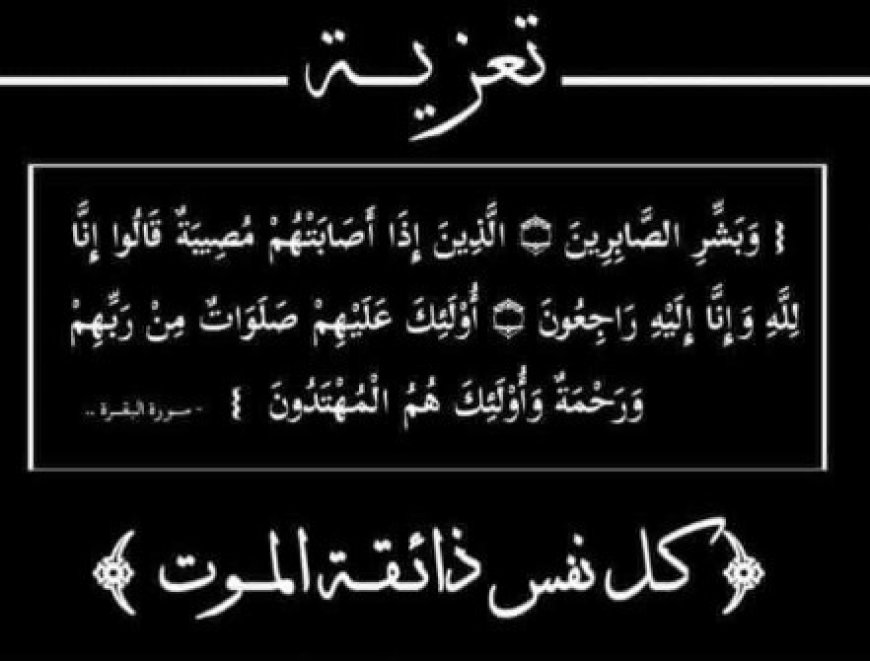 تعزية
﴿ وَبَشِّرِ الصَّابِرِينَ ۝ الَّذِينَ إِذَا أَصَابَتْهُمْ مُصِيبَةٌ قَالُوا إِنَّا
لِلَّهِ وَإِنَّا إِلَيْهِ رَاجِعُونَ ۝ أُوْلَئِكَ عَلَيْهِمْ صَلَوَاتٌ مِنْ رَبِّهِمْ
وَرَحْمَةٌ وَأُوْلَئِكَ هُمُ الْمُهْتَدُونَ ﴾ - سورة البقرة ..
﴿كل نفس ذائقة الموت﴾